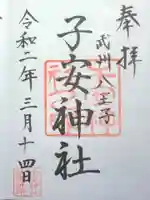 奉拝
武州八王子
子安神社
令和二年三月十四日